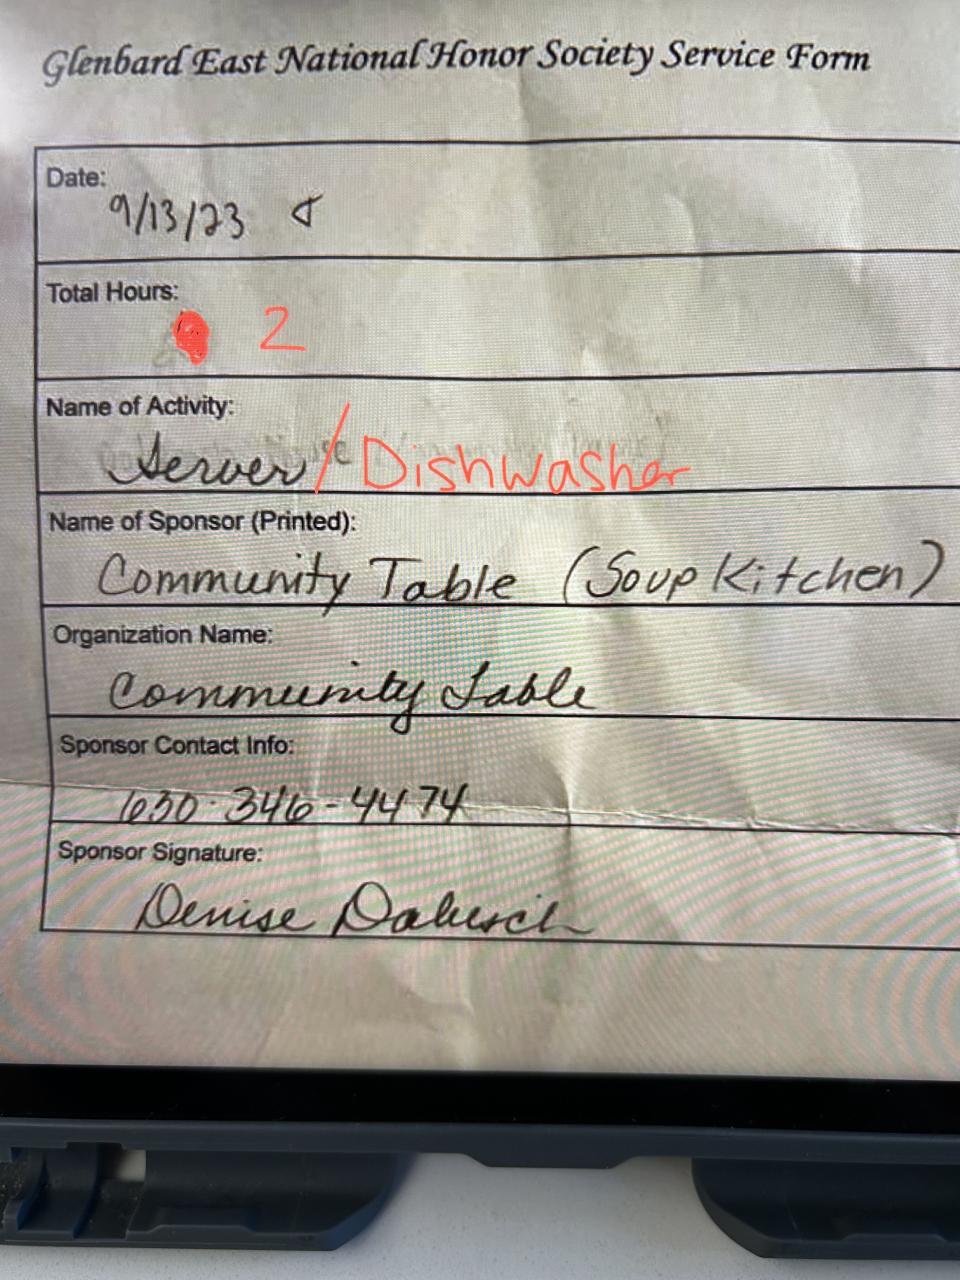 Glenbard East National Honor Society Service Form
Date:
9/13/23
Total Hours:
2
Name of Activity:
Server/Dishwasher
Name of Sponsor (Printed):
Community Table (Soup Kitchen)
Organization Name:
Community Table
Sponsor Contact Info:
630-346-4474
Sponsor Signature:
Denise